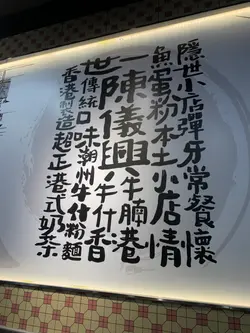 隱世小店彈牙常餐懷
魚蛋粉本土小店情
牛腩港
一陳儀興牛什香
世傳統口味潮州牛什粉麵
香港製造超正港式奶茶